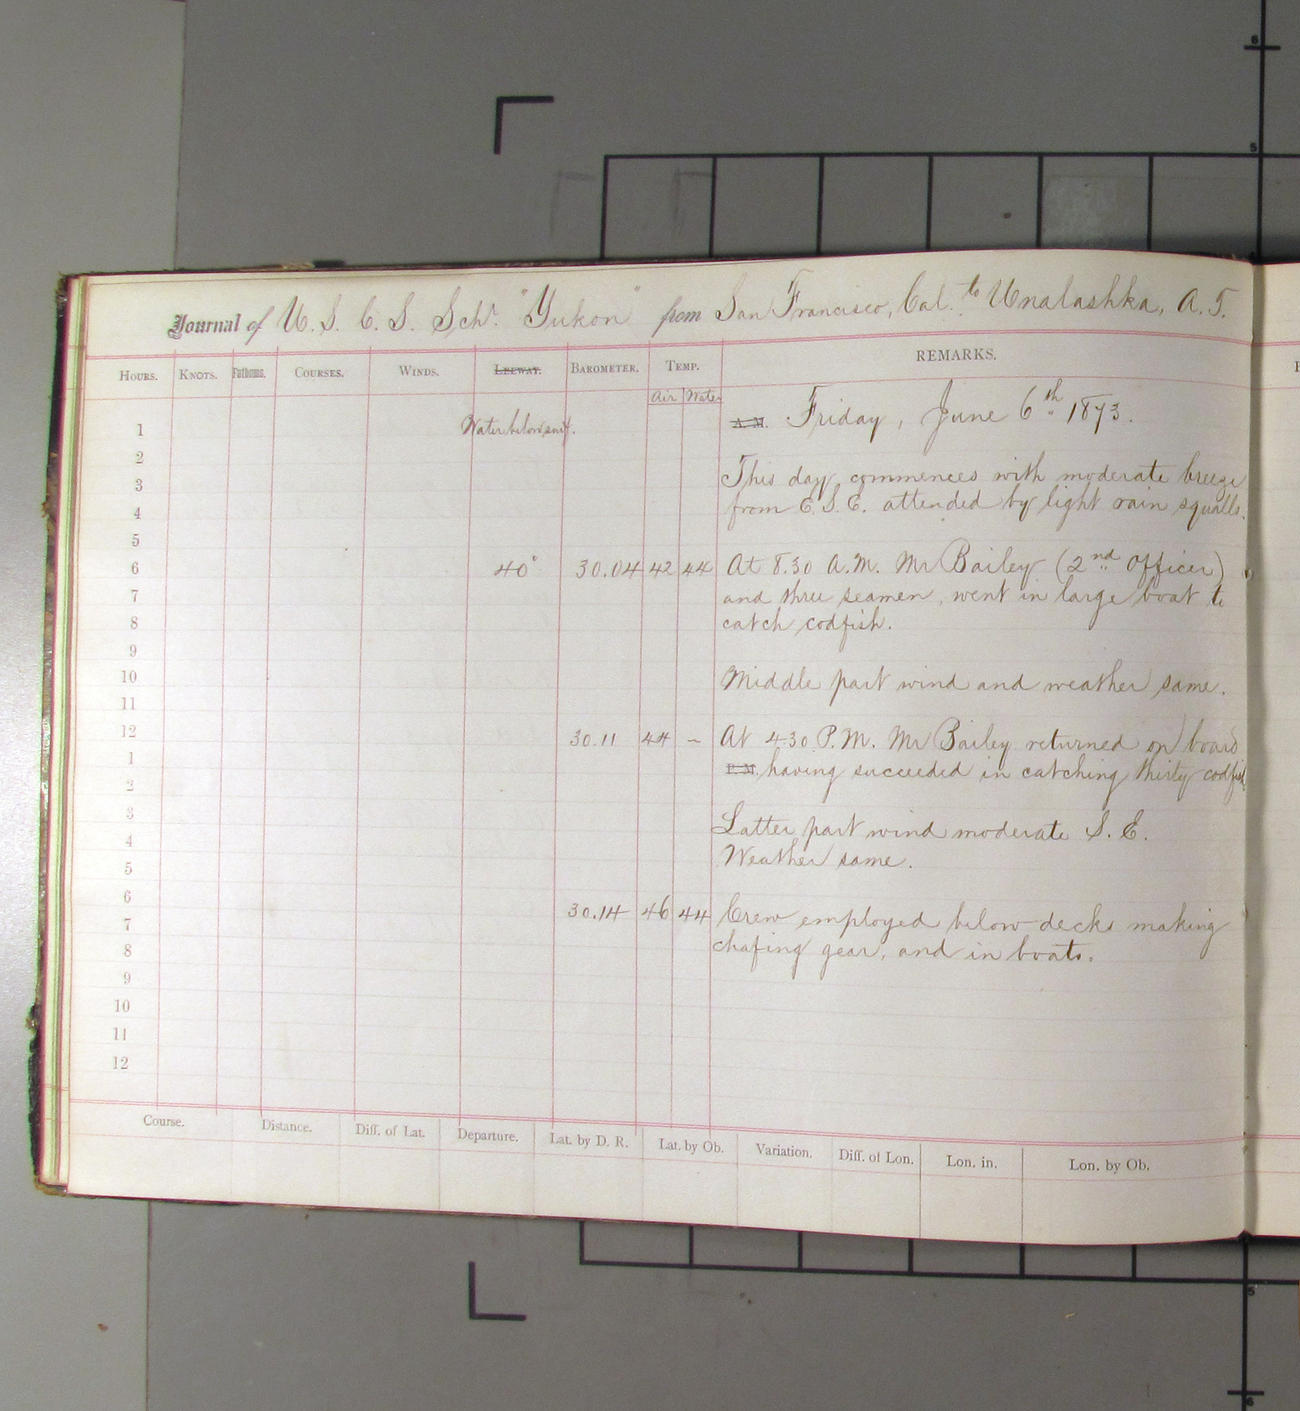 Journal of U. S. C. S. Schr. "Yukon" from San Francisco, Cal. to Unalashka, A. T.
HOURS. KNOTS. Fathoms. COURSES. WINDS. LEEWAY. BAROMETER. TEMP. REMARKS.
Air Water
1 Water below surf. A.M. Friday, June 6th 1873.
2
3 This day commences with moderate breeze
4 from E. S. E. attended by light rain squalls.
5
6 40° 30.04 42 44 At 8.30 A.M. Mr Bailey (2nd Officer)
7 and three seamen, went in large boat to
8 catch codfish.
9
10 Middle part wind and weather same.
11
12 30.11 44 – At 4.30 P.M. Mr Bailey returned on board
1 P.M. having succeeded in catching thirty codfish
2
3 Latter part wind moderate S. E.
4 Weather same.
5
6 30.14 46 44 Crew employed below decks making
7 chafing gear, and in boats.
8
9
10
11
12
Course. Distance. Diff. of Lat. Departure. Lat. by D. R. Lat. by Ob. Variation. Diff. of Lon. Lon. in. Lon. by Ob.
6
5
5
6